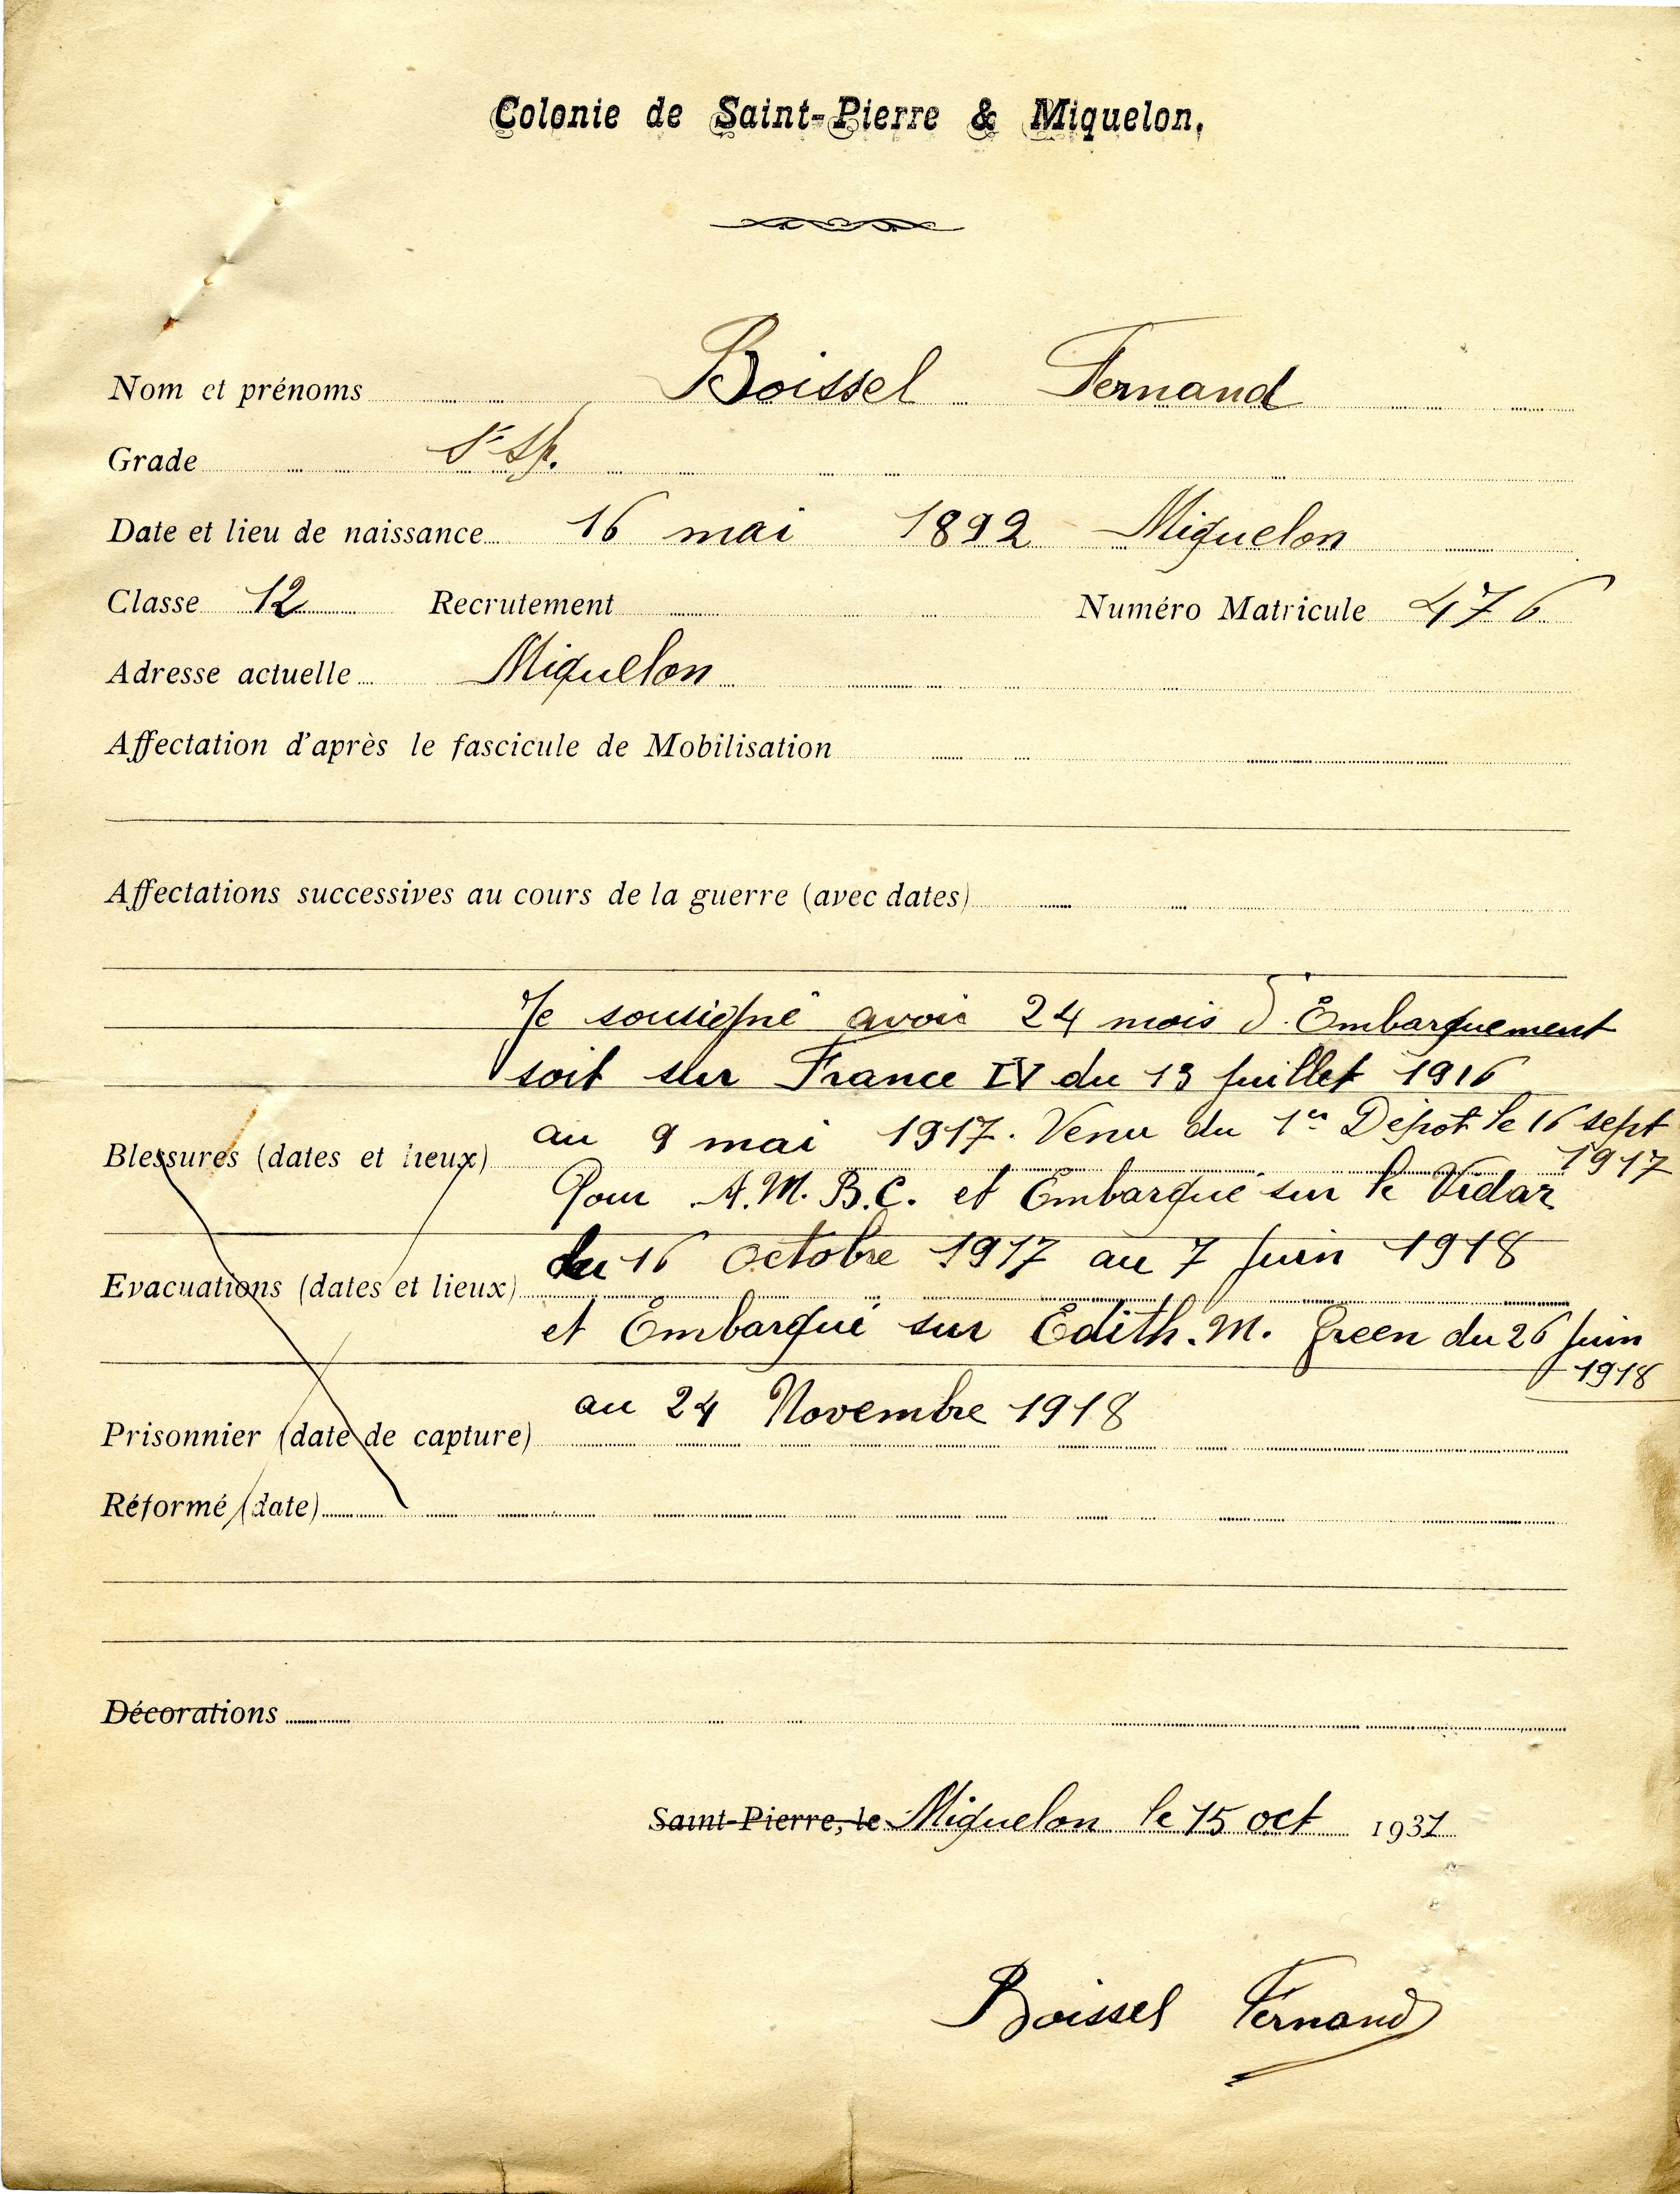 Colonie de Saint-Pierre & Miquelon,
Nom et prénoms Boissel Fernand
Grade
Date et lieu de naissance 16 mai 1892 Miquelon
Classe 12 Recrutement Numéro Matricule 476
Adresse actuelle Miquelon
Affectation d'après le fascicule de Mobilisation
Affectations successives au cours de la guerre (avec dates)
Je sousigné avoir 24 mois d'Embarquement
soit sur France IV du 13 juillet 1916
au 9 mai 1917. Venu du 1er Dépot le 16 sept
1917
Blessures (dates et lieux)
Pour A.M.B.C. et Embarqué sur le Vidar
du 16 Octobre 1917 au 7 juin 1918
Evacuations (dates et lieux)
et Embarqué sur Edith.M. Green du 26 juin
1918
au 24 Novembre 1918
Prisonnier (date de capture)
Réformé (date)
Décorations
Saint-Pierre, le Miquelon le 15 oct 1931
Boissel Fernand